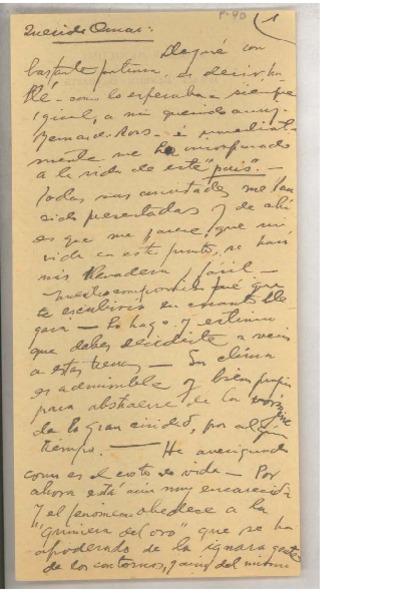 P-90
1
Querido Omar:
Llegué con
bastante fortuna, es decir, ha-
llé - como lo esperaba - siempre
igual, a mi querido amigo
Bernardo Roos - e inmediata-
mente me ha incorporado
a la vida de este "país". -
Todas sus amistades me han
sido presentadas y de ahí
es que me parece que mi
vida en este punto, se hará
más llevadera, fácil -
Nuestro compromiso fué que
te escribiría en cuanto lle-
gara - Lo hago y estimo
que debes decidirte a venir
a estas tierras - Su clima
es admirable y bien propio
para abstraerse de la vorágine
de la gran ciudad, por algún
tiempo. - He averiguado
como es el costo de vida - Por
ahora está aún muy encarecida
y el fenómeno obedece a la
"quimera del oro" que se ha
apoderado de la ignara gente
de los contornos, y aún del mismo